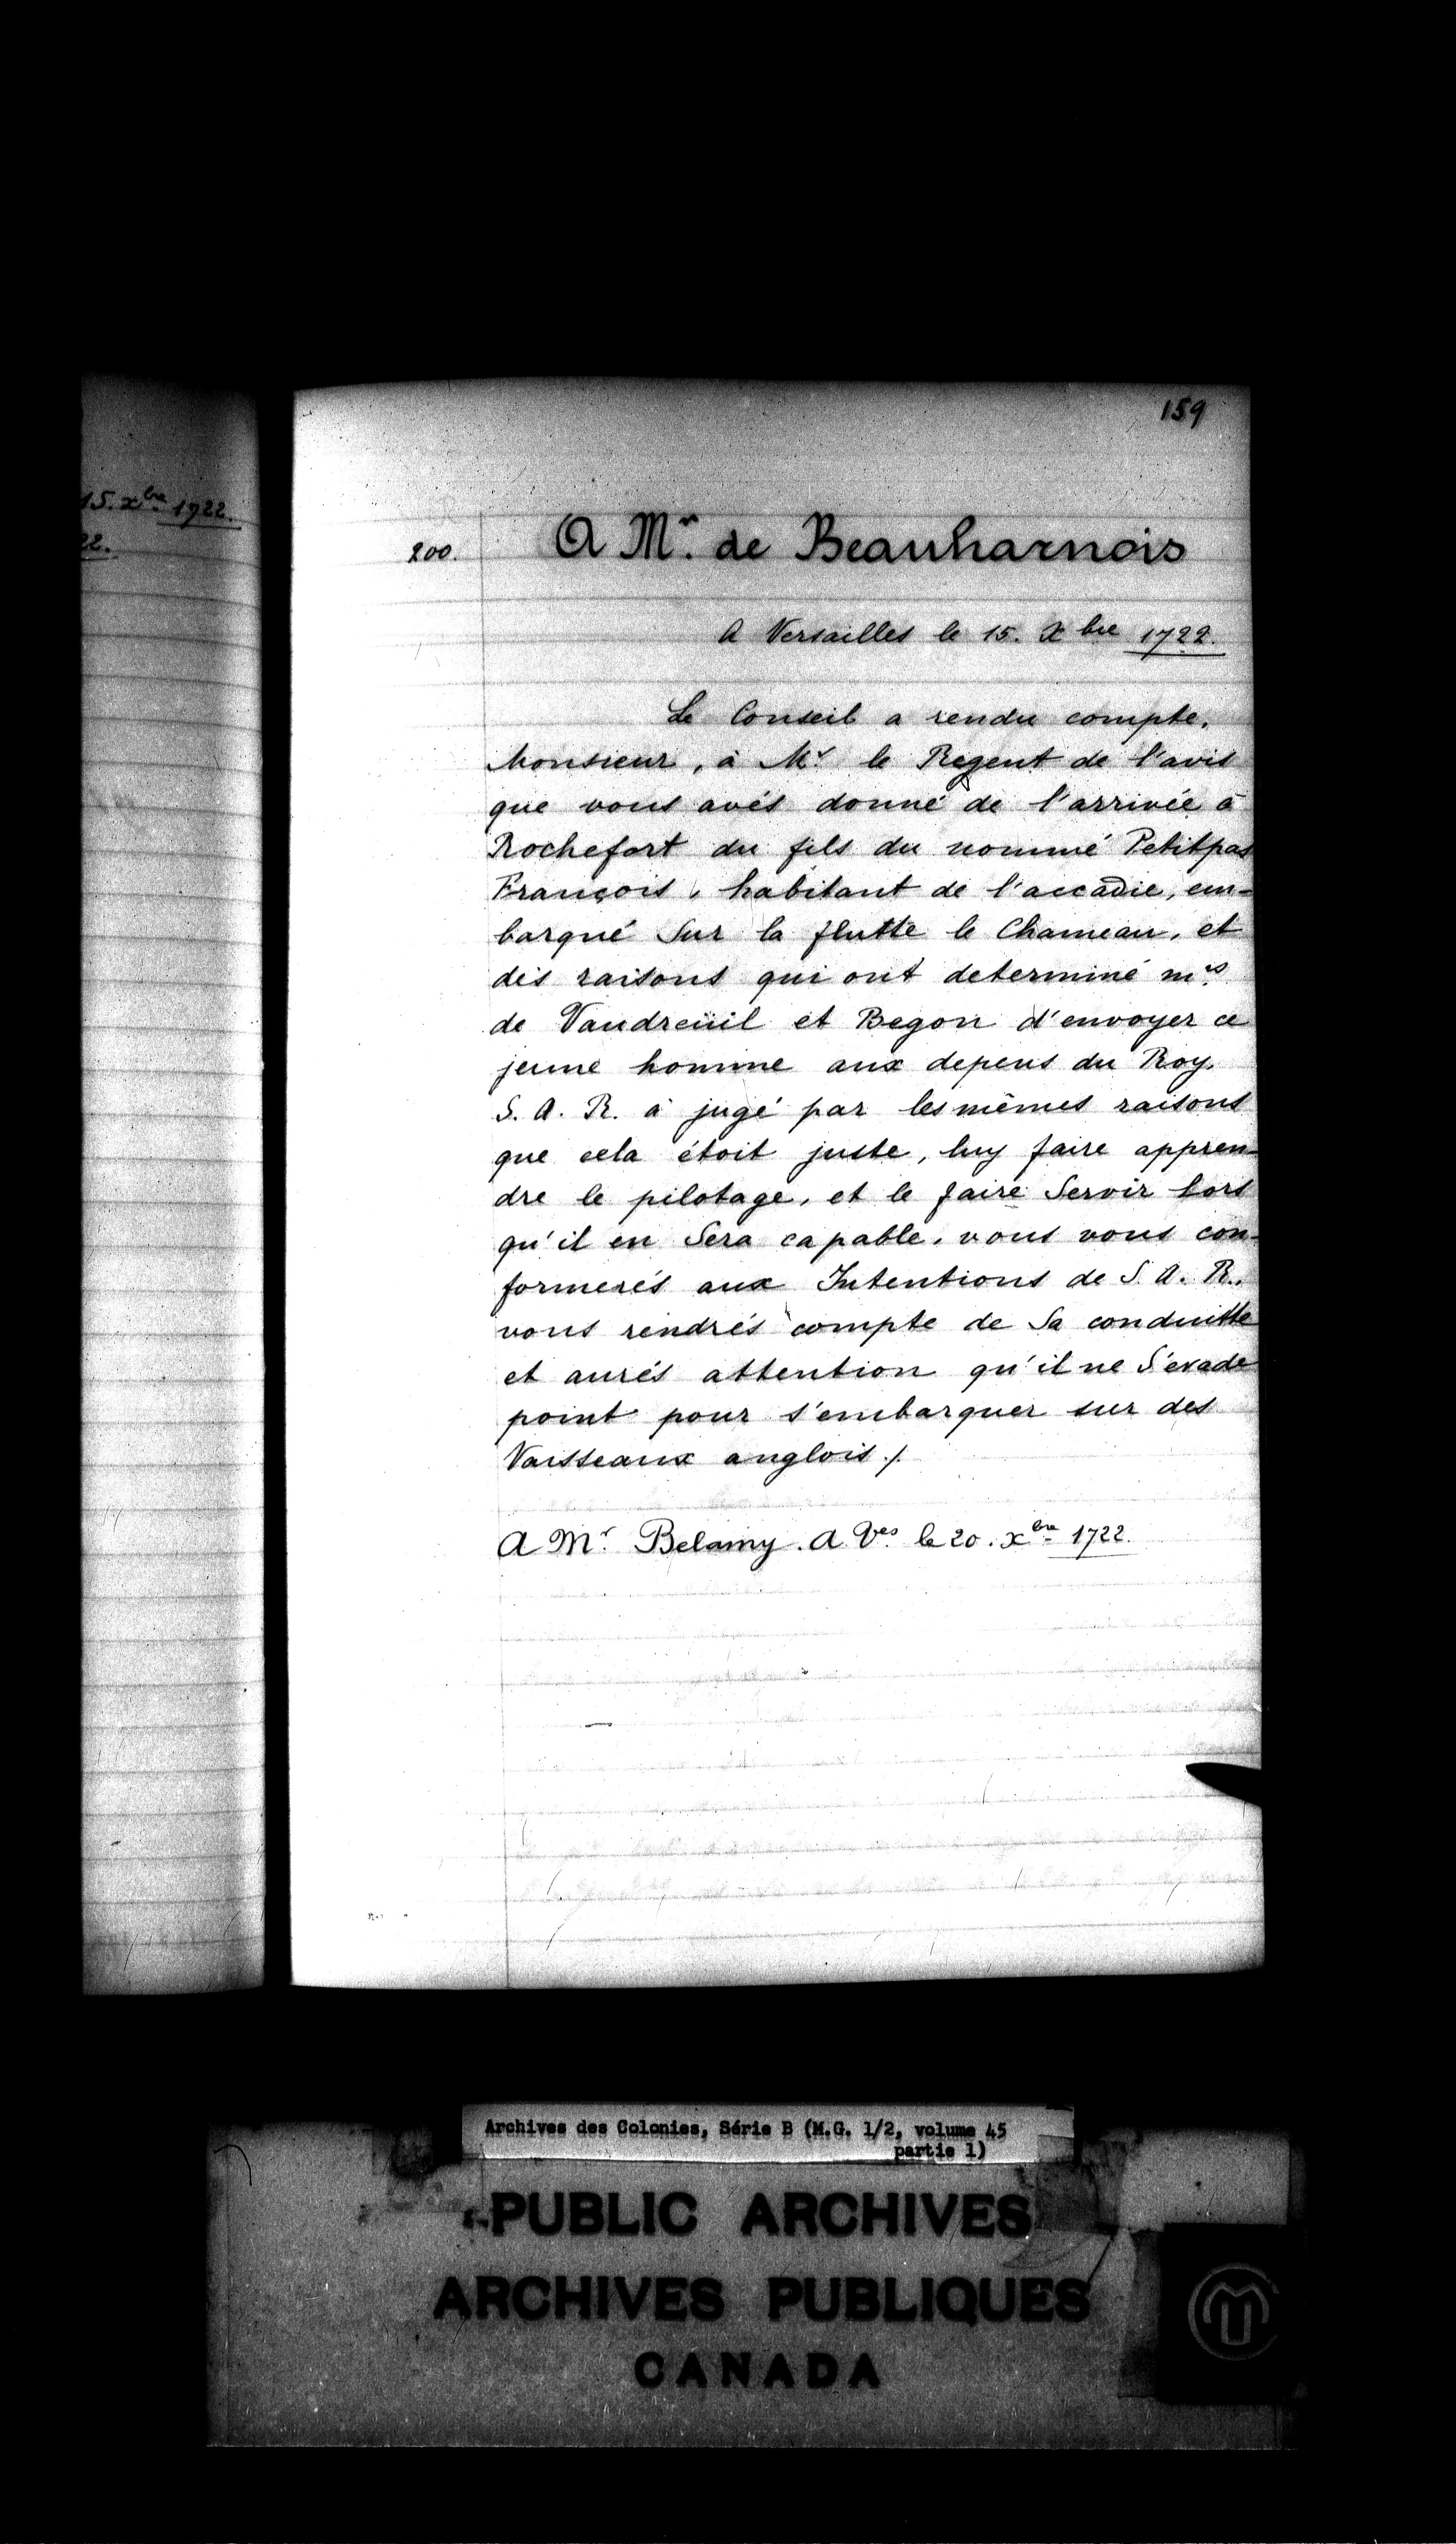 15. xbre 1722.
22.
159
200.
A Mr. de Beauharnois
A Versailles le 15. Xbre 1722.
Le Conseil a rendu compte,
Monsieur, à Mr le Regent de l'avis
que vous avés donné de l'arrivée à
Rochefort du fils du nommé Petitpas
François, habitant de l'accadie, em-
barqué Sur la flutte le Chameau, et
des raisons qui ont determiné mrs
de Vaudreüil et Begon d'envoyer ce
jeune homme aux depens du Roy.
S. A. R. a jugé par les mêmes raisons
que cela étoit juste, luy faire appren-
dre le pilotage, et le faire Servir lors
qu'il en Sera capable, vous vous con-
formerés aux Intentions de S. A. R.,
vous rendrés compte de Sa conduitte
et aurés attention qu'il ne S'evade
point pour s'embarquer sur des
Vaisseaux anglois ./.
A Mr. Belamy. A Ves. le 20. xbre 1722.
Archives des Colonies, Série B (M.G. 1/2, volume 45
partie 1)
PUBLIC ARCHIVES
ARCHIVES PUBLIQUES
CANADA